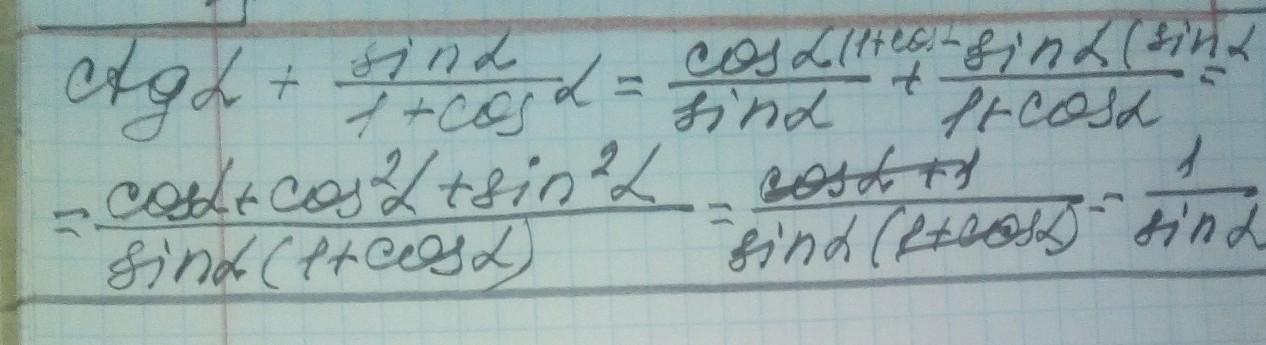 ctgα + sinα / 1+cos α = cosα(1+cos / sinα + sinα(sinα / 1+cosα =
= cosα+cos²α+sin²α / sinα(1+cosα) = cosα+1 / sinα(1+cosα) = 1 / sinα